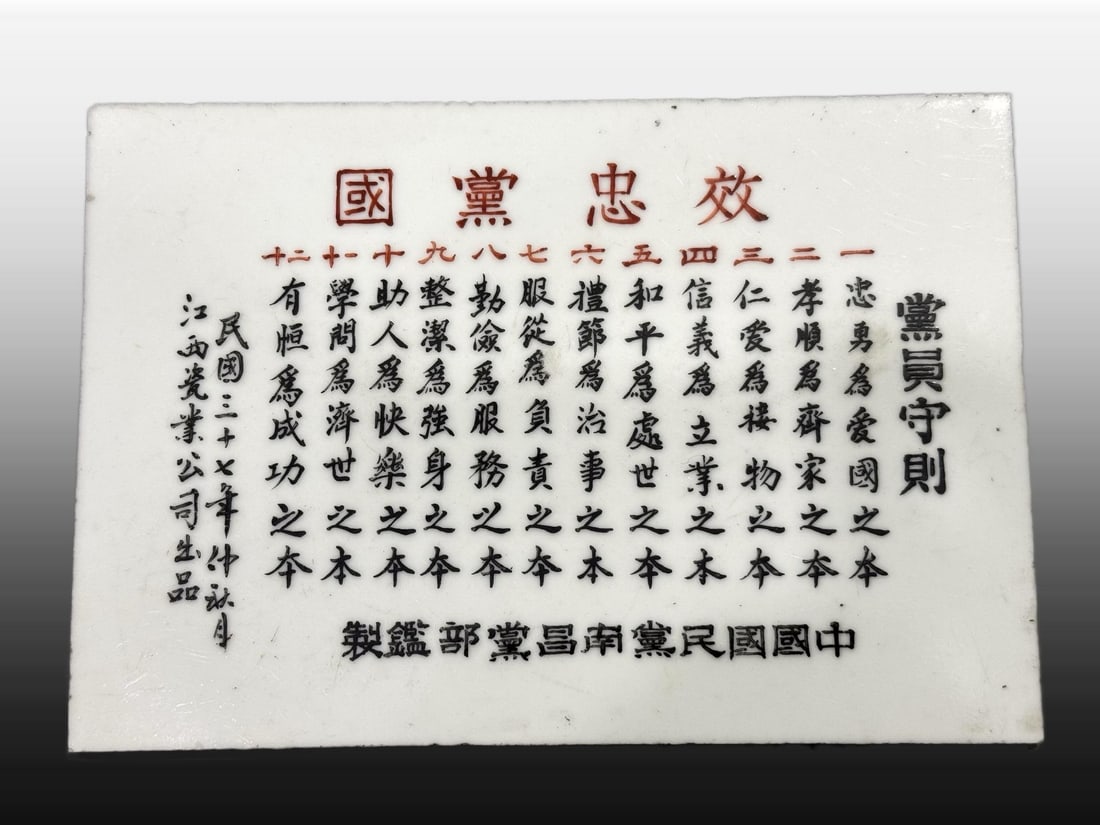 效忠黨國
黨員守則
一 忠勇爲愛國之本
二 孝順爲齊家之本
三 仁爱爲接物之本
四 信義爲立業之本
五 和平爲處世之本
六 禮節爲治事之本
七 服從爲負責之本
八 勤儉爲服務之本
九 整潔爲強身之本
十 助人爲快樂之本
十一 學問爲濟世之本
十二 有恒爲成功之本
民國三十七年仲秋月
江西瓷業公司出品
中國國民黨南昌黨部鑑製